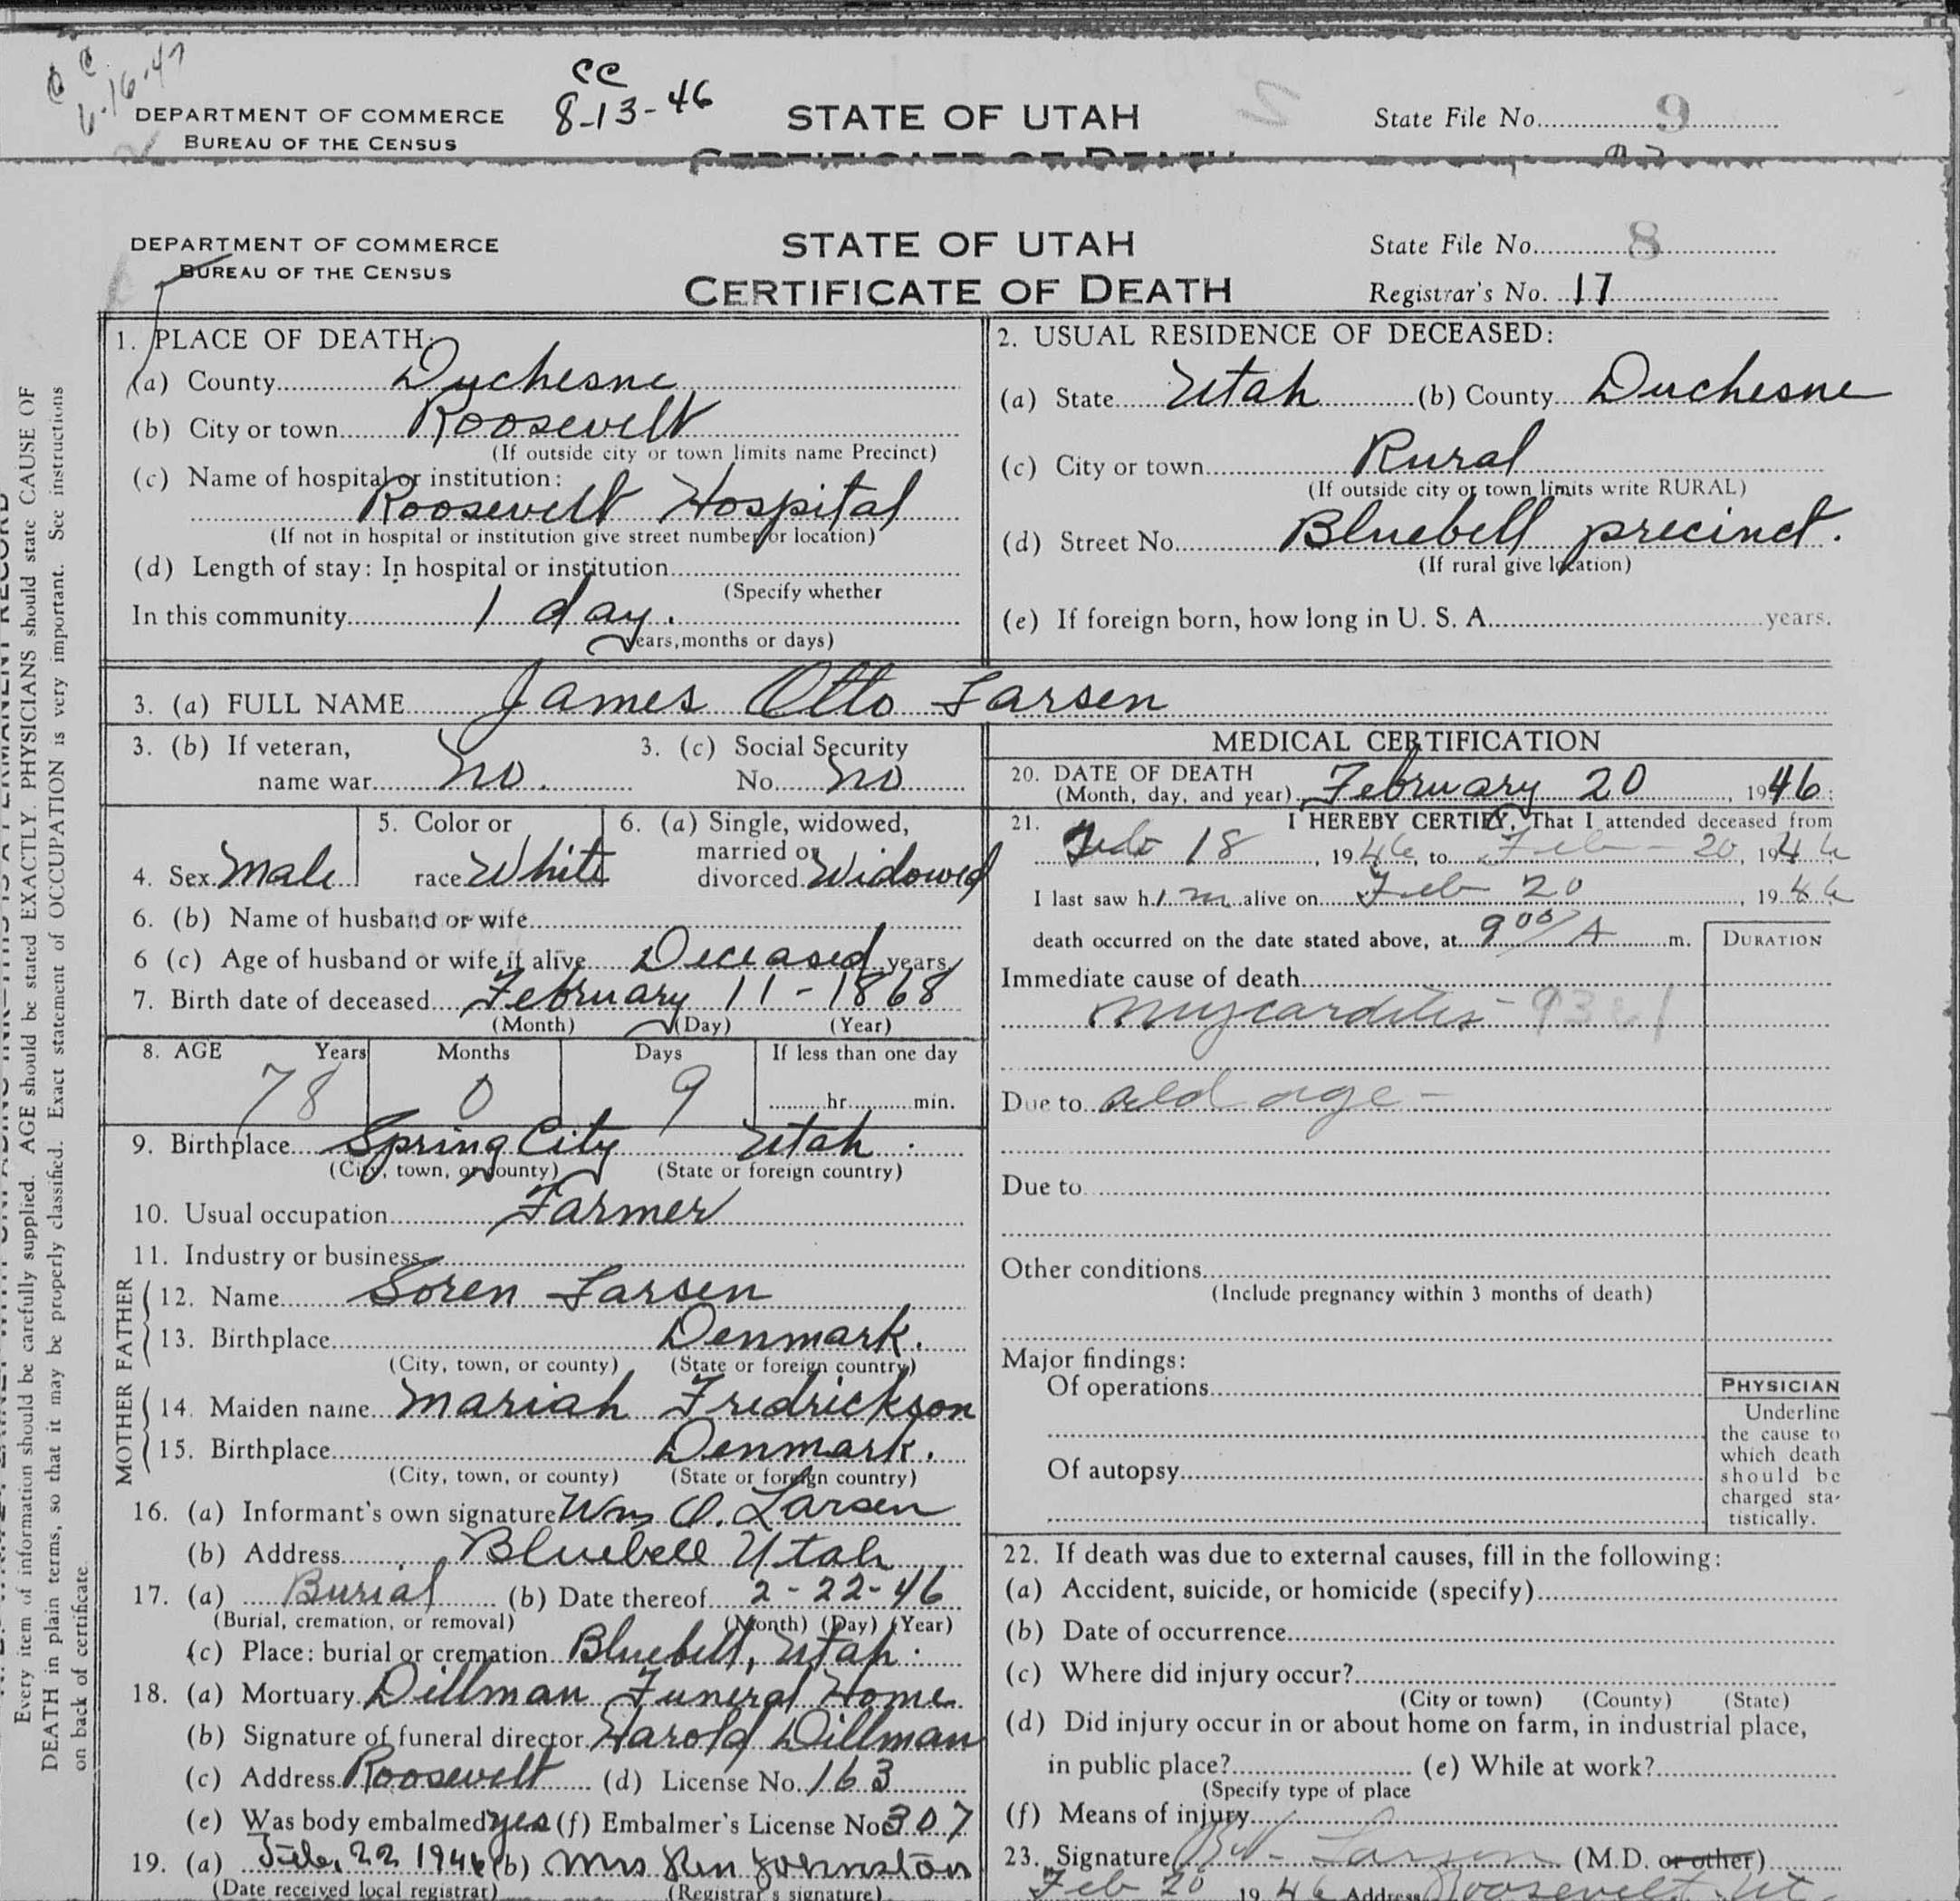 CC
6-16-47
CC
8-13-46
DEPARTMENT OF COMMERCE
BUREAU OF THE CENSUS
STATE OF UTAH
State File No. 9
CERTIFICATE OF DEATH
DEPARTMENT OF COMMERCE
BUREAU OF THE CENSUS
STATE OF UTAH
CERTIFICATE OF DEATH
State File No. 8
Registrar's No. 17
Every item of information should be carefully supplied. AGE should be stated EXACTLY. PHYSICIANS should state CAUSE OF
DEATH in plain terms, so that it may be properly classified. Exact statement of OCCUPATION is very important. See instructions
on back of certificate.
1. PLACE OF DEATH:
(a) County Duchesne
(b) City or town Roosevelt
(If outside city or town limits name Precinct)
(c) Name of hospital or institution:
Roosevelt Hospital
(If not in hospital or institution give street number or location)
(d) Length of stay: In hospital or institution
(Specify whether
In this community 1 day.
years, months or days)
2. USUAL RESIDENCE OF DECEASED:
(a) State Utah (b) County Duchesne
(c) City or town Rural
(If outside city or town limits write RURAL)
(d) Street No. Bluebell precinct.
(If rural give location)
(e) If foreign born, how long in U. S. A. years.
3. (a) FULL NAME James Otto Larsen
3. (b) If veteran,
name war no.
3. (c) Social Security
No. no
4. Sex Male
5. Color or
race White
6. (a) Single, widowed,
married or
divorced Widowed
6. (b) Name of husband or wife
6 (c) Age of husband or wife if alive Deceased years
7. Birth date of deceased February 11 - 1868
(Month) (Day) (Year)
8. AGE Years Months Days If less than one day
78 0 9 hr. min.
9. Birthplace Spring City Utah.
(City, town, or county) (State or foreign country)
10. Usual occupation Farmer
11. Industry or business
FATHER
12. Name Soren Larsen
13. Birthplace Denmark.
(City, town, or county) (State or foreign country)
MOTHER
14. Maiden name Mariah Fredrickson
15. Birthplace Denmark.
(City, town, or county) (State or foreign country)
16. (a) Informant's own signature Wm O. Larsen
(b) Address Bluebell Utah
17. (a) Burial (b) Date thereof 2-22-46
(Burial, cremation, or removal) (Month) (Day) (Year)
(c) Place: burial or cremation Bluebell, Utah.
18. (a) Mortuary Dillman Funeral Home
(b) Signature of funeral director Harold Dillman
(c) Address Roosevelt (d) License No. 163
(e) Was body embalmed yes (f) Embalmer's License No 307
19. (a) Feb. 22 1946 (b) Mrs Ren Johnston
(Date received local registrar) (Registrar's signature)
MEDICAL CERTIFICATION
20. DATE OF DEATH
(Month, day, and year) February 20, 1946
21. I HEREBY CERTIFY, That I attended deceased from
Feb 18, 1946, to Feb - 20, 1946
I last saw him alive on Feb 20, 1946
death occurred on the date stated above, at 9 00/A m.
DURATION
Immediate cause of death
Mycarditis -
Due to old age -
Due to
Other conditions
(Include pregnancy within 3 months of death)
Major findings:
Of operations
Of autopsy
PHYSICIAN
Underline
the cause to
which death
should be
charged sta-
tistically.
22. If death was due to external causes, fill in the following:
(a) Accident, suicide, or homicide (specify)
(b) Date of occurrence
(c) Where did injury occur?
(City or town) (County) (State)
(d) Did injury occur in or about home on farm, in industrial place,
in public place? (e) While at work?
(Specify type of place
(f) Means of injury
23. Signature Larsen (M.D. or other)
Feb 20 1946 Address Roosevelt Ut